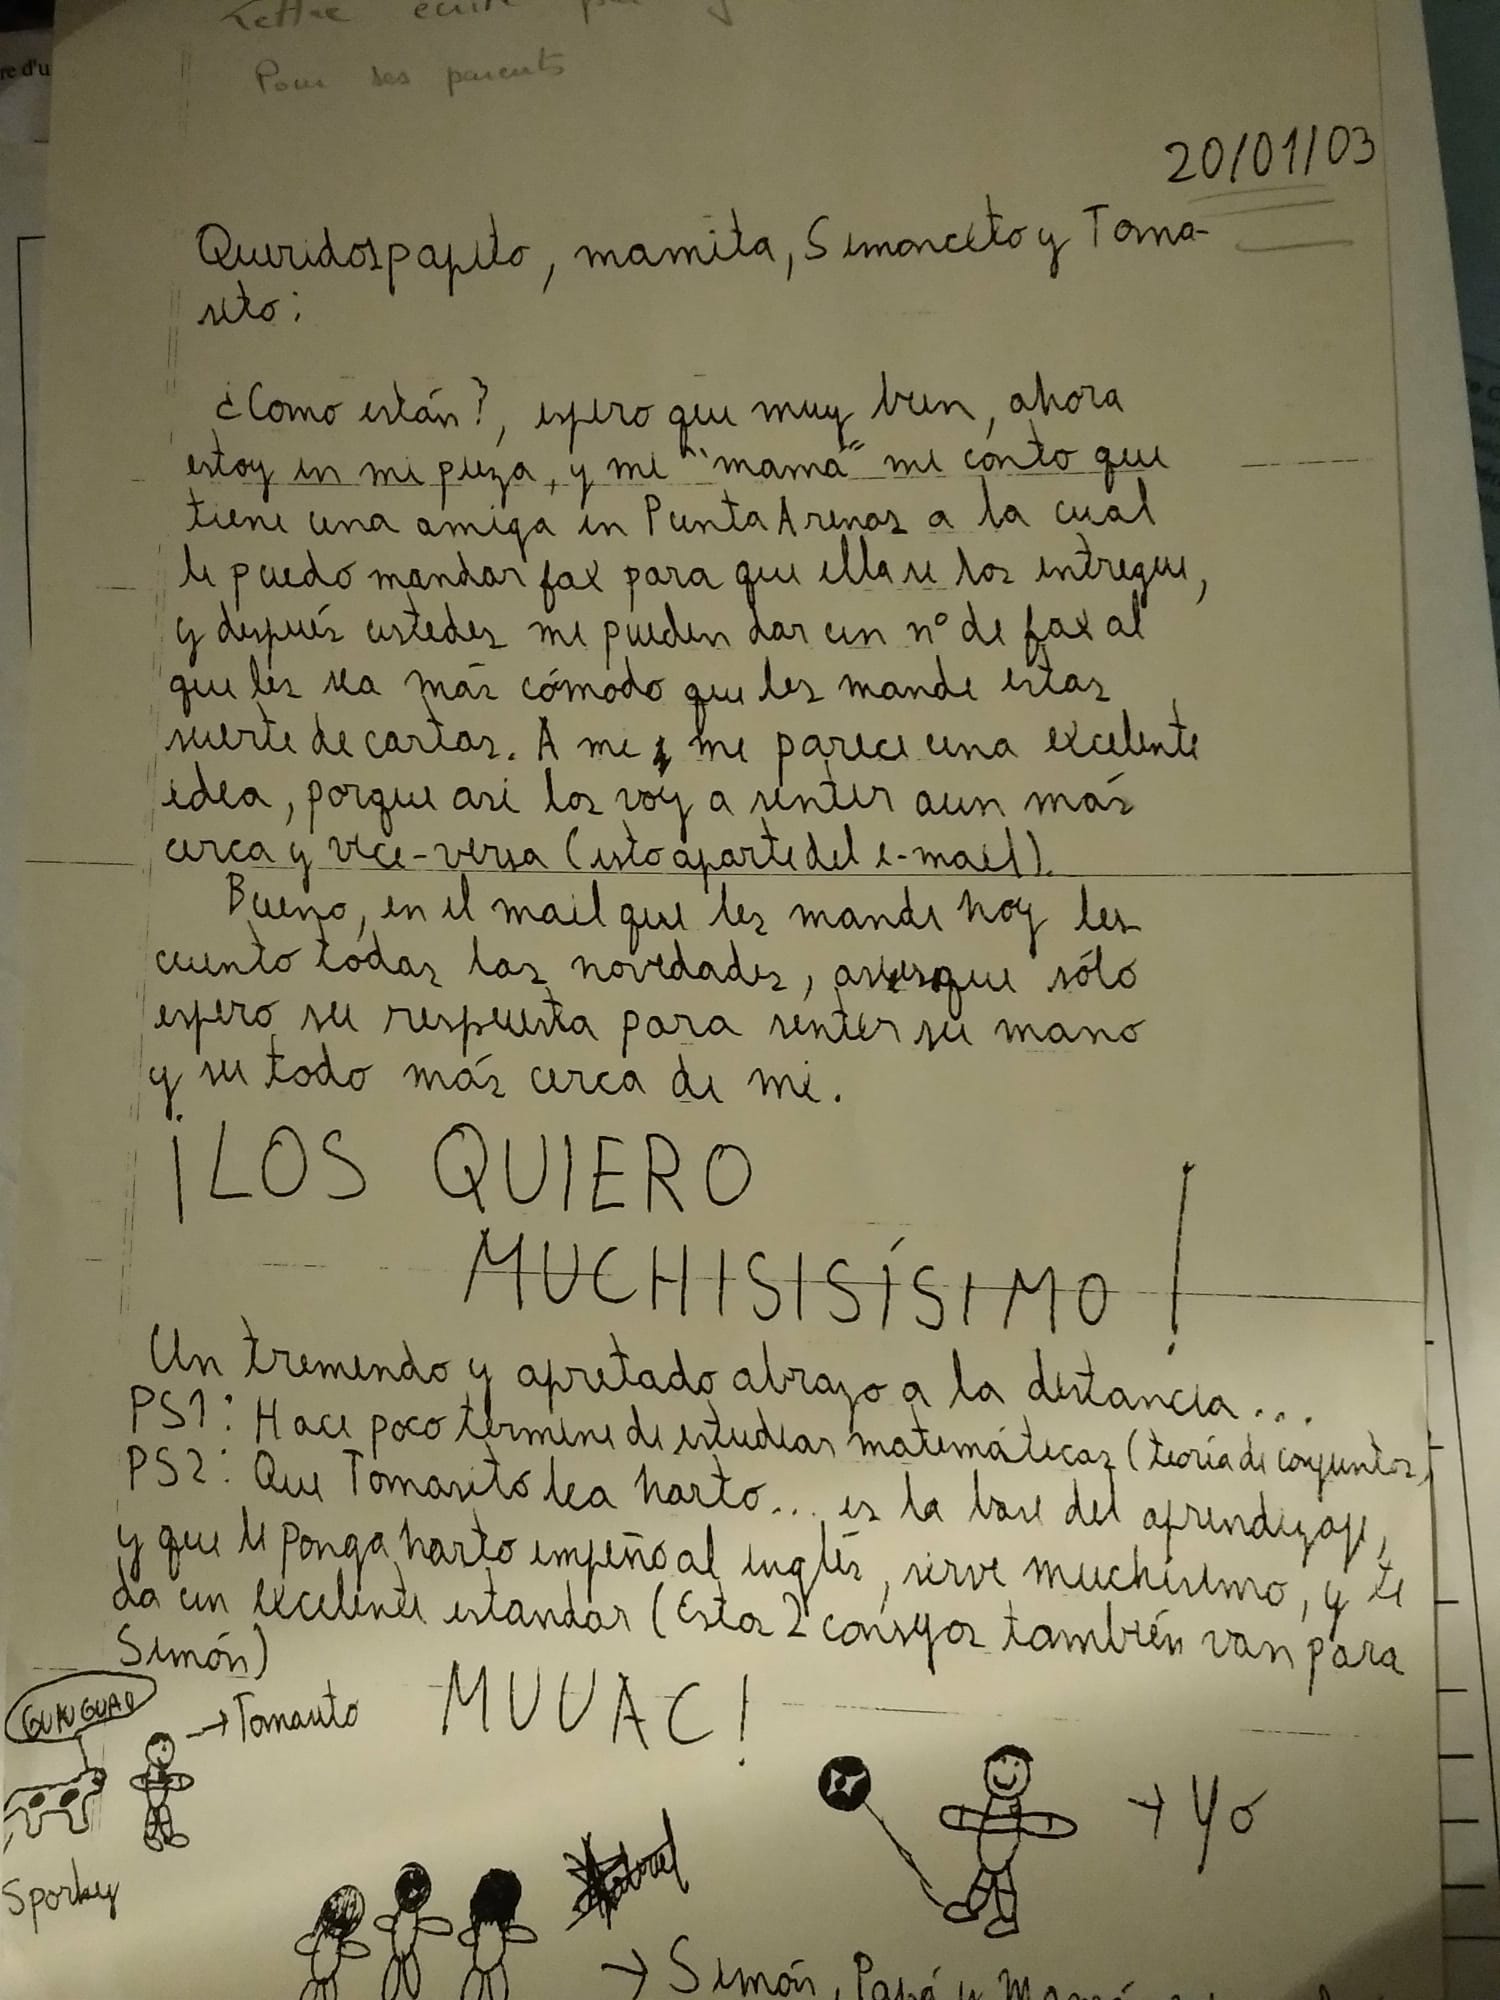 re d'u
Lettre écrite
Pour ses parents
20/01/03
Queridos papito, mamita, Simoncito y Toma-
sito:
¿Como están?, espero que muy bien, ahora
estoy en mi pieza, y mi "mamá" me conto que
tiene una amiga en Punta Arenas a la cual
le puedo mandar fax para que ella se los entregue,
y después ustedes me pueden dar un n° de fax al
que les sea más cómodo que les mande estas
suerte de cartas. A mi me parece una excelente
idea, porque asi los voy a sentir aun más
cerca y vice-versa (esto aparte del e-mail).
Bueno, en el mail que les mande hoy les
cuento todas las novedades, que sólo
espero su respuesta para sentir su mano
y su todo más cerca de mi.
¡LOS QUIERO
MUCHISISÍSIMO!
Un tremendo y apretado abrazo a la distancia...
PS1: Hace poco termine de estudiar matemáticas (teoría de conjuntos)
PS2: Que Tomasito lea harto... es la base del aprendizaje,
y que le ponga harto empeño al inglés, sirve muchísimo, y te
da un excelente estandar (Estos 2 consejos también van para
Simón)
GUAU GUAU
→ Tomasito
MUUAC!
→ Yo
Sporky
→ Simón, Papá y Mamá